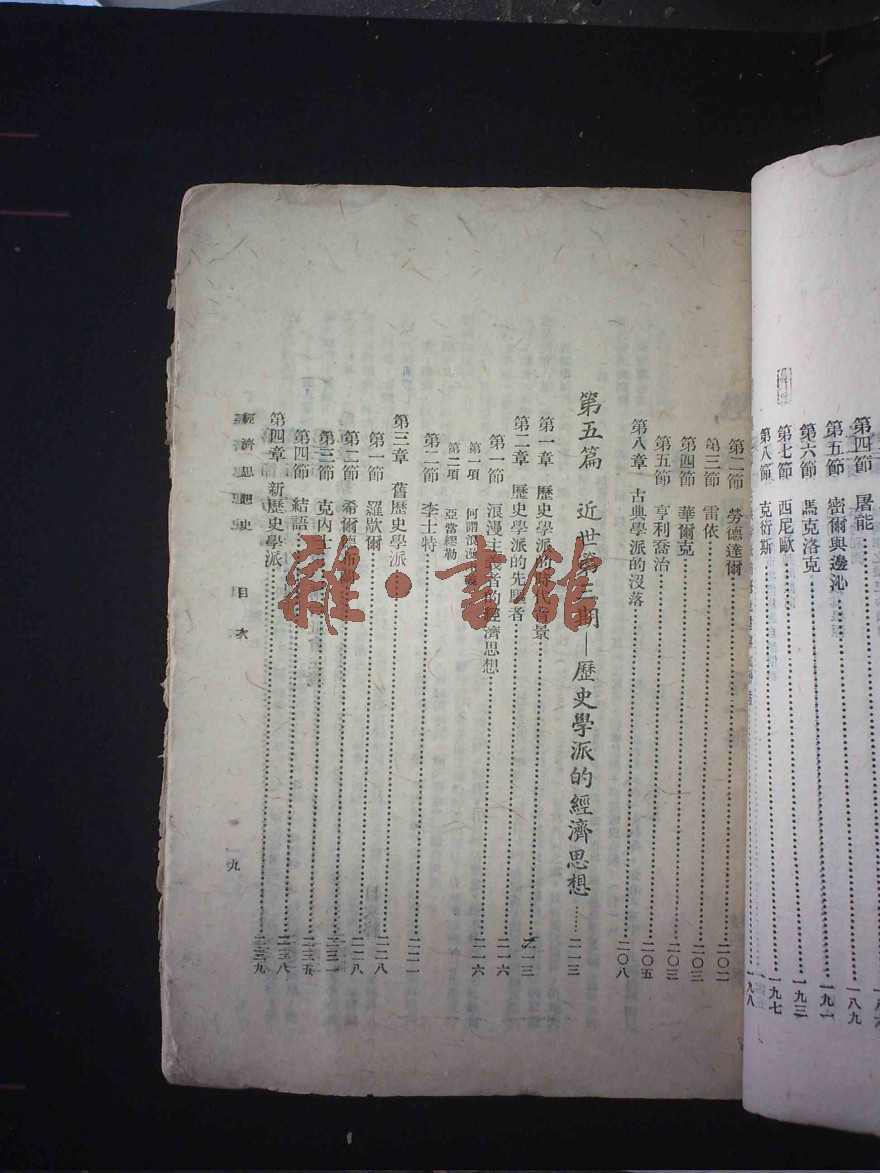 第四節 屠能⋯⋯一八九
第五節 密爾與邊沁⋯⋯一九一
第六節 馬克洛克⋯⋯一九三
第七節 西尼歐⋯⋯一九七
第八節 克衍斯⋯⋯一九八
第二節 勞德達爾⋯⋯二〇二
第三節 雷依⋯⋯二〇三
第四節 華爾克⋯⋯二〇三
第五節 亨利喬治⋯⋯二〇五
第八章 古典學派的沒落⋯⋯二〇八
第五篇 近世第三期—歷史學派的經濟思想⋯⋯二一三
第一章 歷史學派的時代背景⋯⋯二一三
第二章 歷史學派的先驅者⋯⋯二一六
第一節 浪漫主義者的經濟思想⋯⋯二一六
第一項 何謂浪漫主義
第二項 亞當繆勒
第二節 李士特⋯⋯二二一
第三章 舊歷史學派⋯⋯二二八
第一節 羅歇爾⋯⋯二二八
第二節 希爾德布⋯⋯二三一
第三節 克內士⋯⋯二三五
第四節 結語⋯⋯二三八
第四章 新歷史學派⋯⋯二三九
經濟思想史 目次 一九
雜·書館